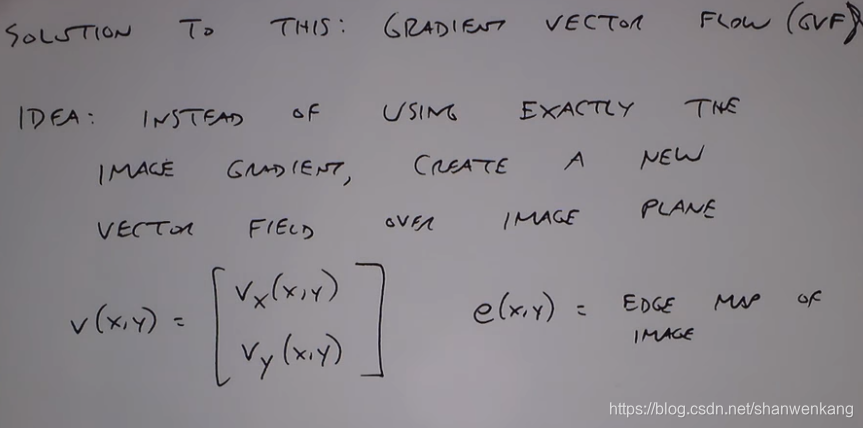 SOLUTION TO THIS: GRADIENT VECTOR FLOW (GVF)
IDEA: INSTEAD OF USING EXACTLY THE
IMAGE GRADIENT, CREATE A NEW
VECTOR FIELD OVER IMAGE PLANE
v(x,y) = [ Vx(x,y) Vy(x,y) ] e(x,y) = EDGE MAP OF
IMAGE
https://blog.csdn.net/shanwenkang